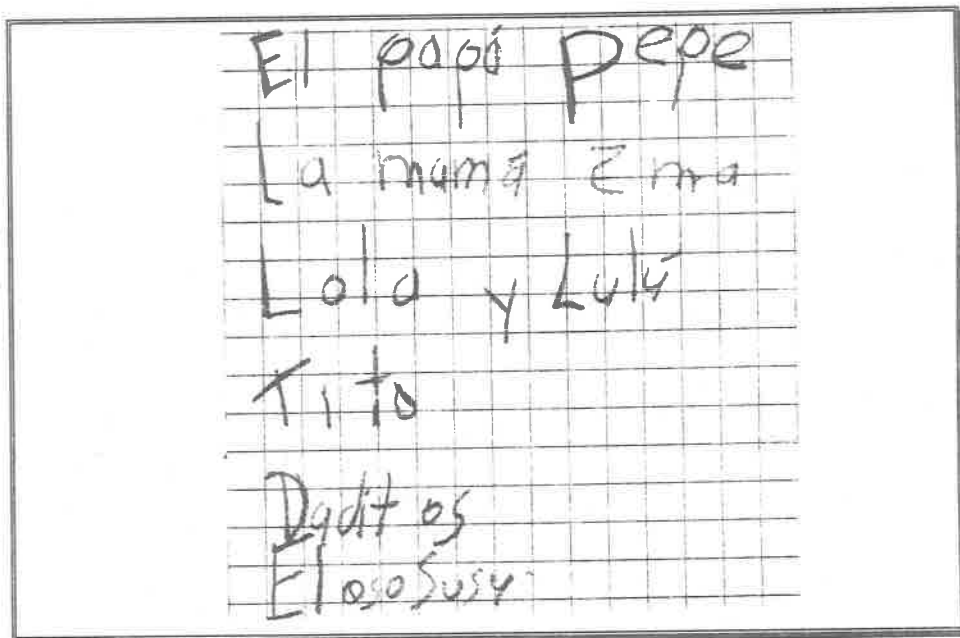 El papá Pepe
La mamá Ema
Lola y Lulú
Tito
Daditos
El oso Susy